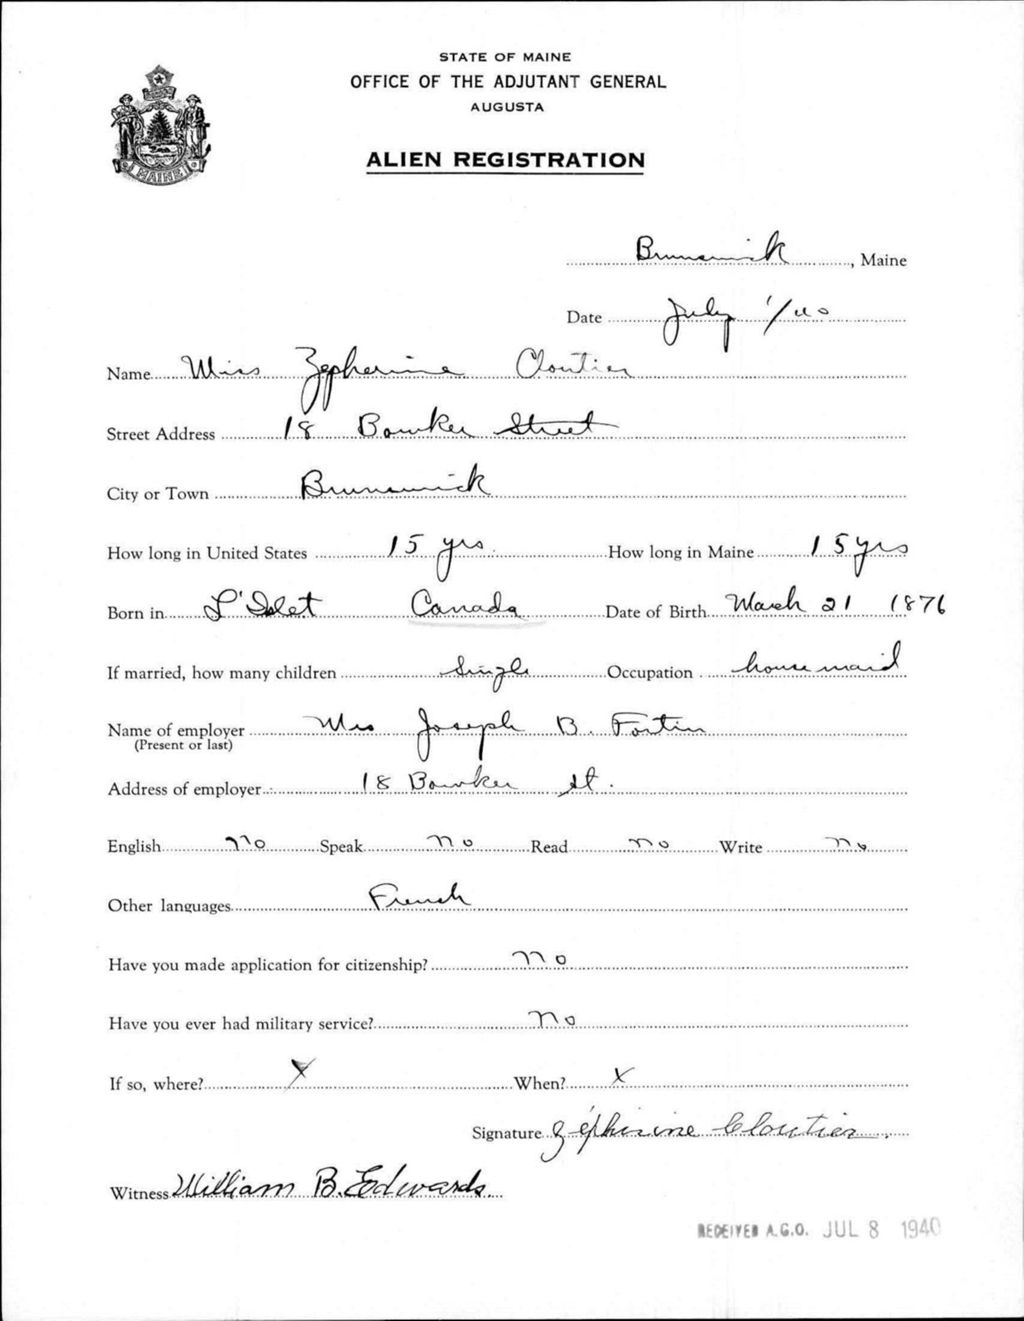 STATE OF MAINE
OFFICE OF THE ADJUTANT GENERAL
AUGUSTA
MAINE
ALIEN REGISTRATION
Brunswick, Maine
Date July 1/40
Name Miss Zepherine Cloutier
Street Address 18 Bowker Street
City or Town Brunswick
How long in United States 15 yrs. How long in Maine 15 yrs
Born in L'Islet Canada Date of Birth March 21 1876
If married, how many children Single Occupation housemaid
Name of employer Mrs Joseph B. Fortin
(Present or last)
Address of employer 18 Bowker St.
English no Speak no Read no Write no
Other languages French
Have you made application for citizenship? no
Have you ever had military service? no
If so, where? x When? x
Signature Zéphirine Cloutier
Witness William B. Edwards
RECEIVED A.G.O. JUL 8 1940